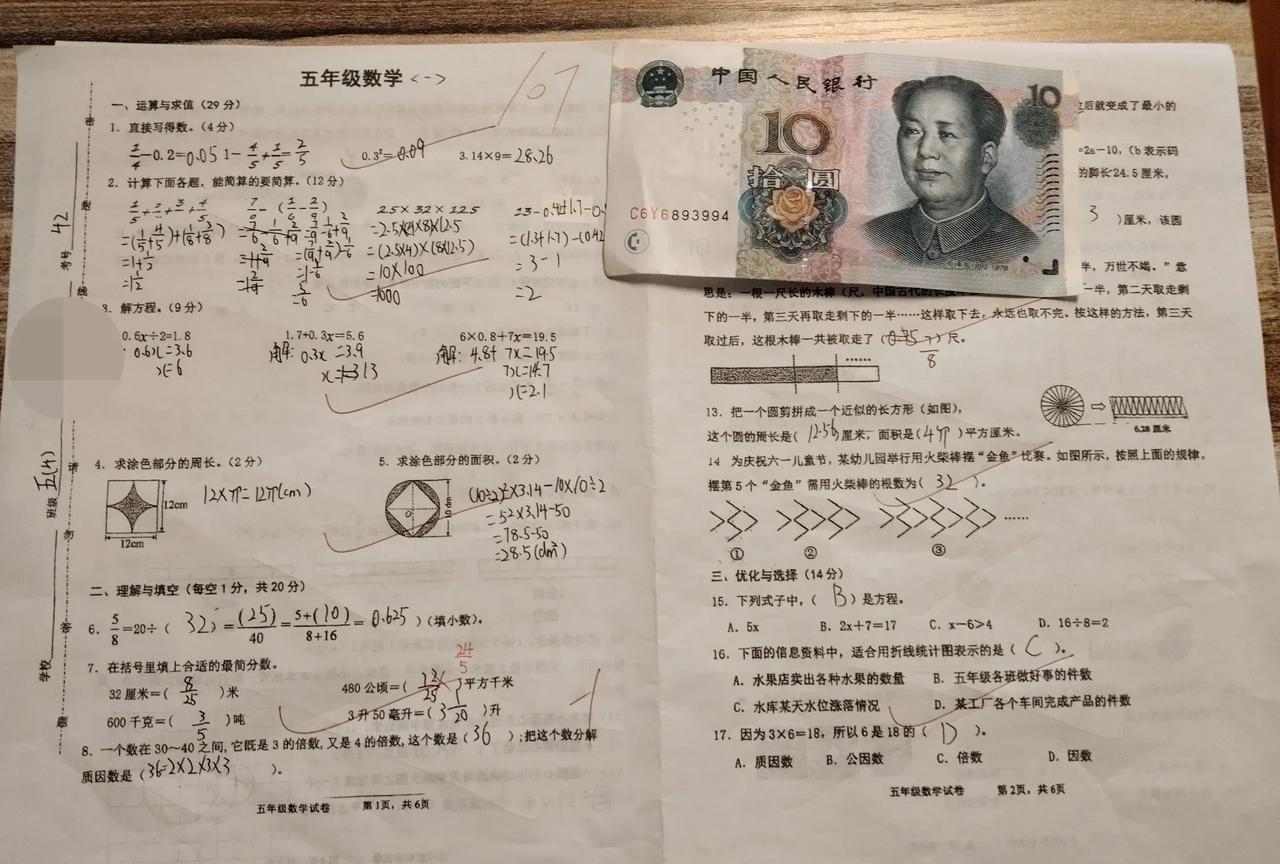 五年级数学<一>
107
一、运算与求值(29分)
1. 直接写得数。(4分)
1/4-0.2=0.05 1-4/5+1/5=2/5 0.3²=0.09 3.14×9=28.26
2. 计算下面各题,能简算的要简算。(12分)
2.5×32×12.5
=2.5×(4×8)×12.5
=(2.5×4)×(8×12.5)
=10×100
=1000
=3-1
=2
3. 解方程。(9分)
0.6x÷2=1.8 1.7+0.3x=5.6 6×0.8+7x=19.5
0.6x=3.6 解: 0.3x=3.9 解: 4.8+7x=19.5
x=6 x=13 7x=14.7
x=2.1
4. 求涂色部分的周长。(2分)
12cm
12cm
12×π=12π(cm)
5. 求涂色部分的面积。(2分)
10dm
(10÷2)²×3.14-10×10÷2
=5²×3.14-50
=78.5-50
=28.5(dm²)
二、理解与填空(每空1分,共20分)
6. 5/8=20÷(32)=(25)/40=5+(10)/8+16=0.625(填小数)。
7. 在括号里填上合适的最简分数。
24/5
32厘米=(8/25)米 480公顷=( )平方千米
600千克=(3/5)吨 3升50毫升=(3 1/20)升
-1
8. 一个数在30~40之间,它既是3的倍数,又是4的倍数,这个数是(36);把这个数分解
质因数是(36=2×2×3×3)。
五年级数学试卷 第1页,共6页
学校
班级 五(4)
考号 42
中国人民银行
10
10
拾圆
C6Y6893994
后就变成了最小的
=2a-10,(b表示码
的脚长24.5厘米,
3)厘米,该圆
半,万世不竭。”意
思是:一根一尺长的木棒(尺,中国古代的长度
一半,第二天取走剩
下的一半,第三天再取走剩下的一半……这样取下去,永远也取不完。按这样的方法,第三天
取过后,这根木棒一共被取走了(7/8)尺。
……
13. 把一个圆剪拼成一个近似的长方形(如图),
这个圆的周长是(12.56)厘米,面积是(4π)平方厘米。
6.28厘米
14 为庆祝六一儿童节,某幼儿园举行用火柴棒摆“金鱼”比赛。如图所示,按照上面的规律,
摆第5个“金鱼”需用火柴棒的根数为(32)。
……
① ② ③
三、优化与选择(14分)
15. 下列式子中,(B)是方程。
A. 5x B. 2x+7=17 C. x-6>4 D. 16÷8=2
16. 下面的信息资料中,适合用折线统计图表示的是(C)。
A. 水果店卖出各种水果的数量 B. 五年级各班做好事的件数
C. 水库某天水位涨落情况 D. 某工厂各个车间完成产品的件数
17. 因为3×6=18,所以6是18的(D)。
A. 质因数 B. 公因数 C. 倍数 D. 因数
五年级数学试卷 第2页,共6页